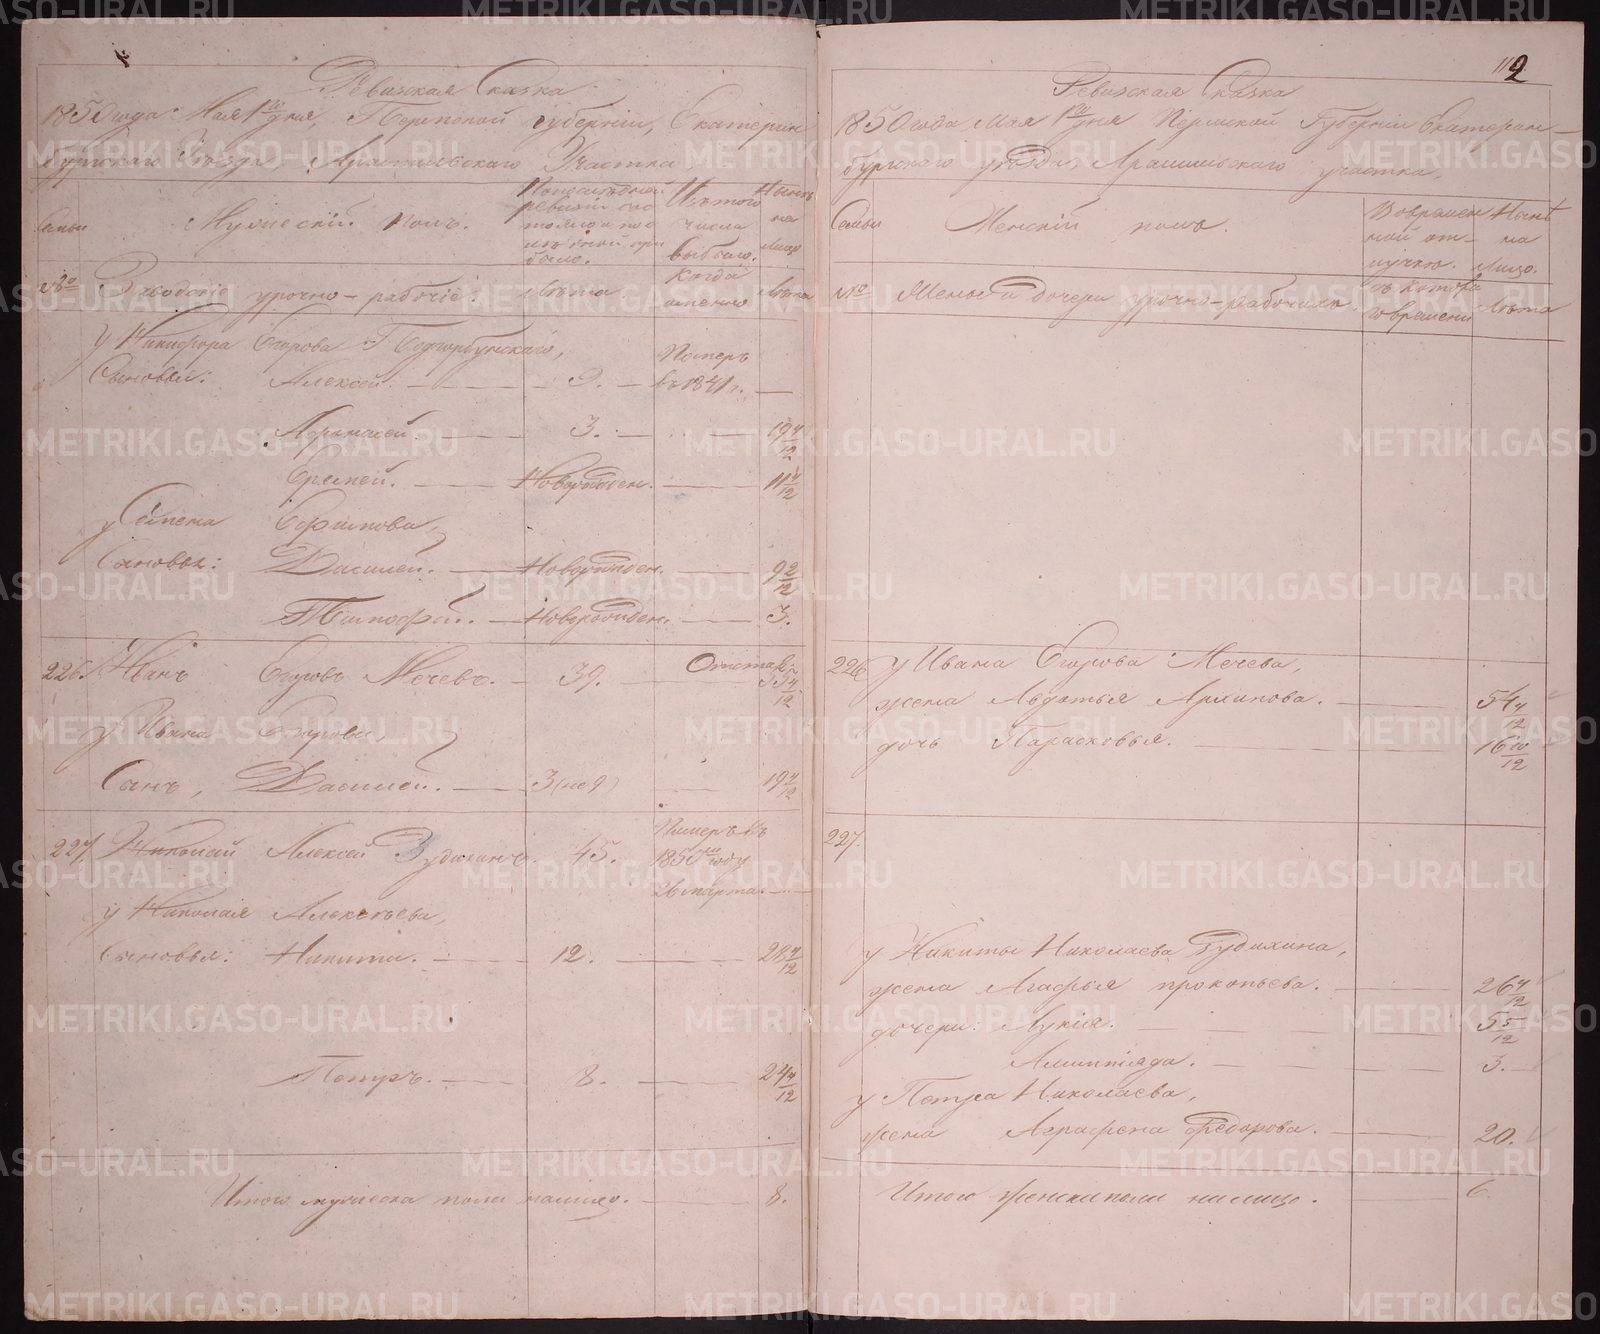 Ревизская Сказка
1850 года Мая 1го дня, Пермской губернии, Екатерин
бургского Уезда, Арамильского Участка
Семьи
Мужеский полъ.
По последней ревизии состояло и после оной прибыло.
Изъ того числа выбыло.
Ныне на лицо
№
Заводскіе урочно-рабочіе.
Лета
Когда именно
Лета
У Никифора Егорова
Сыновья: Алексей. 9. Померъ въ 1841 г.
3. 19 4/12
Еремей. Новорожден. 11 4/12
у Семена Ефимова,
Сыновья: Василей. Новорожден. 9 2/12
Тимофей. Новорожден. 3.
226. Иванъ Егоровъ Мечевъ. 39. Отстав. 55 4/12
у Ивана Егорова,
Сынъ, Василей. 3 (не 9) 19 4/12
227. Николай Алексеевъ Зудихинъ. 45. Померъ въ 1850м году 26 марта.
у Николая Алексеева,
Сыновья: Никита. 12. 28 4/12
Петръ. 8. 24 4/12
Итого мужеска пола налицо. 8.
112
Ревизская Сказка
1850 года Мая 1го дня Пермской Губерніи Екатерин-
бургского уезда, Арамильского участка,
Семьи
Женскій полъ.
Во временной отлучке.
Ныне на Лицо.
№
Жены и дочери урочно-рабочихъ
Съ котораго времени
Лета
226. у Ивана Егорова Мечева,
жена Авдотья Архипова. 54 4/12
дочь Парасковья. 16 10/12
227.
у Никиты Николаева Зудихина,
жена Агафья прокопьева. 26 4/12
дочери: Лукія. 5 5/12
3.
у Петра Николаева,
жена Аграфена Федорова. 20.
Итого женска пола налицо. 6.
METRIKI.GASO-URAL.RU